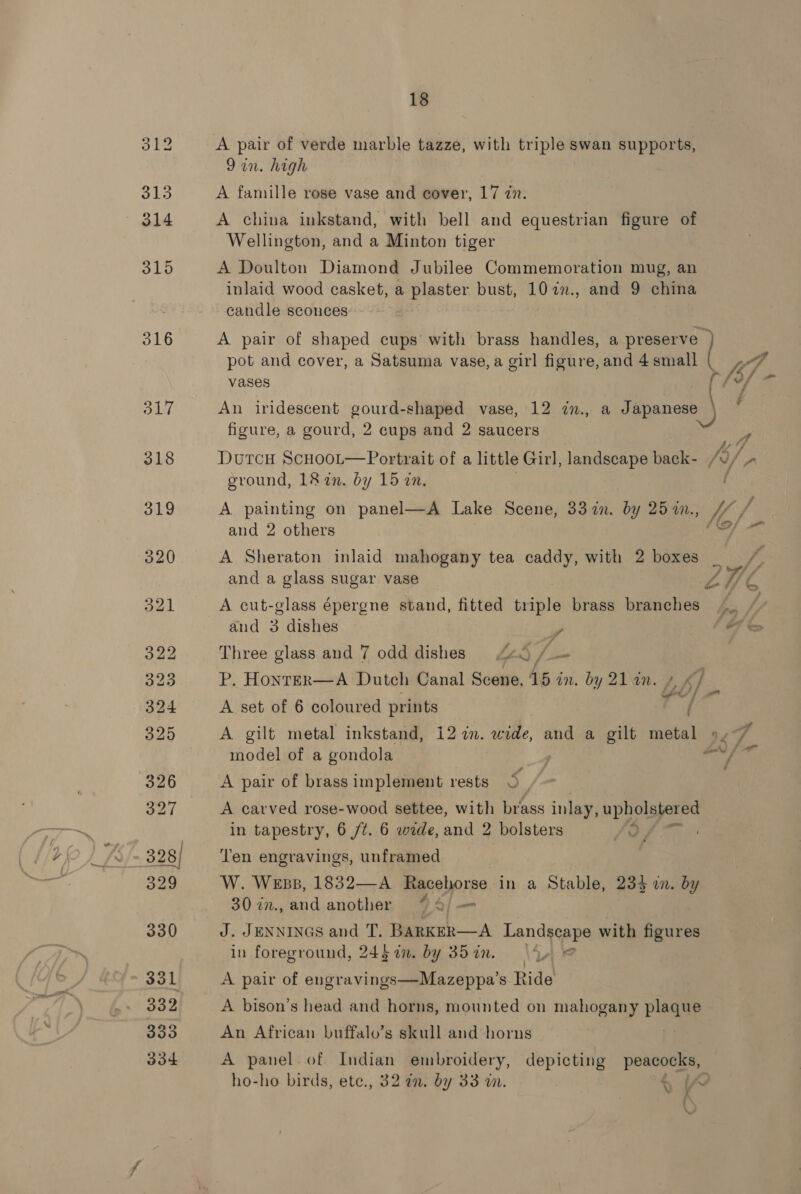 18
312 A pair of verde marble tazze, with triple swan supports,
9 in. high
313 A famille rose vase and cover, 17 in.
314 A china inkstand, with bell and equestrian figure of
Wellington, and a Minton tiger
315 A Doulton Diamond Jubilee Commemoration mug, an
inlaid wood casket, a plaster bust, 10 in., and 9 china
candle sconces
316 A pair of shaped cups with brass handles, a preserve
pot and cover, a Satsuma vase, a girl figure, and 4 small
vases
317 An iridescent gourd-shaped vase, 12 in., a Japanese
figure, a gourd, 2 cups and 2 saucers
318 DUTCH SCHOOL—Portrait of a little Girl, landscape back-
ground, 18 in. by 15 in.
319 A painting on panel—A Lake Scene, 33 in. by 25 in.,
and 2 others
320 A Sheraton inlaid mahogany tea caddy, with 2 boxes
and a glass sugar vase
321 A cut-glass épergne stand, fitted triple brass branches
and 3 dishes
322 Three glass and 7 odd dishes
323 P. HONTER—A Dutch Canal Scene, 15 in. by 21 in.
324 A set of 6 coloured prints
325 A gilt metal inkstand, 12 in. wide, and a gilt metal
model of a gondola
326 A pair of brass implement rests
327 A carved rose-wood settee, with brass inlay, upholstered
in tapestry, 6 ft. 6 wide, and 2 bolsters
328 Ten engravings, unframed
329 W. WEBB, 1832—A Racehorse in a Stable, 23½ in. by
30 in., and another
330 J. JENNINGS and T. BARKER—A Landscape with figures
in foreground, 24½ in. by 35 in.
331 A pair of engravings—Mazeppa's Ride
332 A bison's head and horns, mounted on mahogany plaque
333 An African buffalo's skull and horns
334 A panel of Indian embroidery, depicting peacocks,
ho-ho birds, etc., 32 in. by 33 in.